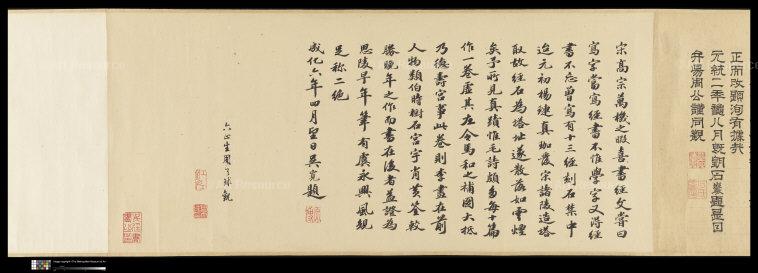 正而改顯洵有據哉
元統二年龍八月既朔石巖題是日
弁陽周公謹同觀
宋高宗萬機之暇喜書經文嘗曰
寫字當寫經書不惟學字又得經
書不忘曾寫有十三經刻石集中
迨元初楊璉真伽發宋諸陵造塔
取故經石為塔址遂散落如雲煙
矣予所見真蹟惟毛詩頗多每十篇
作一卷虛其左令馬和之補圖大抵
乃德壽宮事此卷則李畫在前
人物類伯時樹石宮宇肖黃筌較
勝晚年之作而書在後者益證為
思陵早年筆有虞永興風規
足称二絕
成化六年四月望日吳寬題
六止生周于球觀